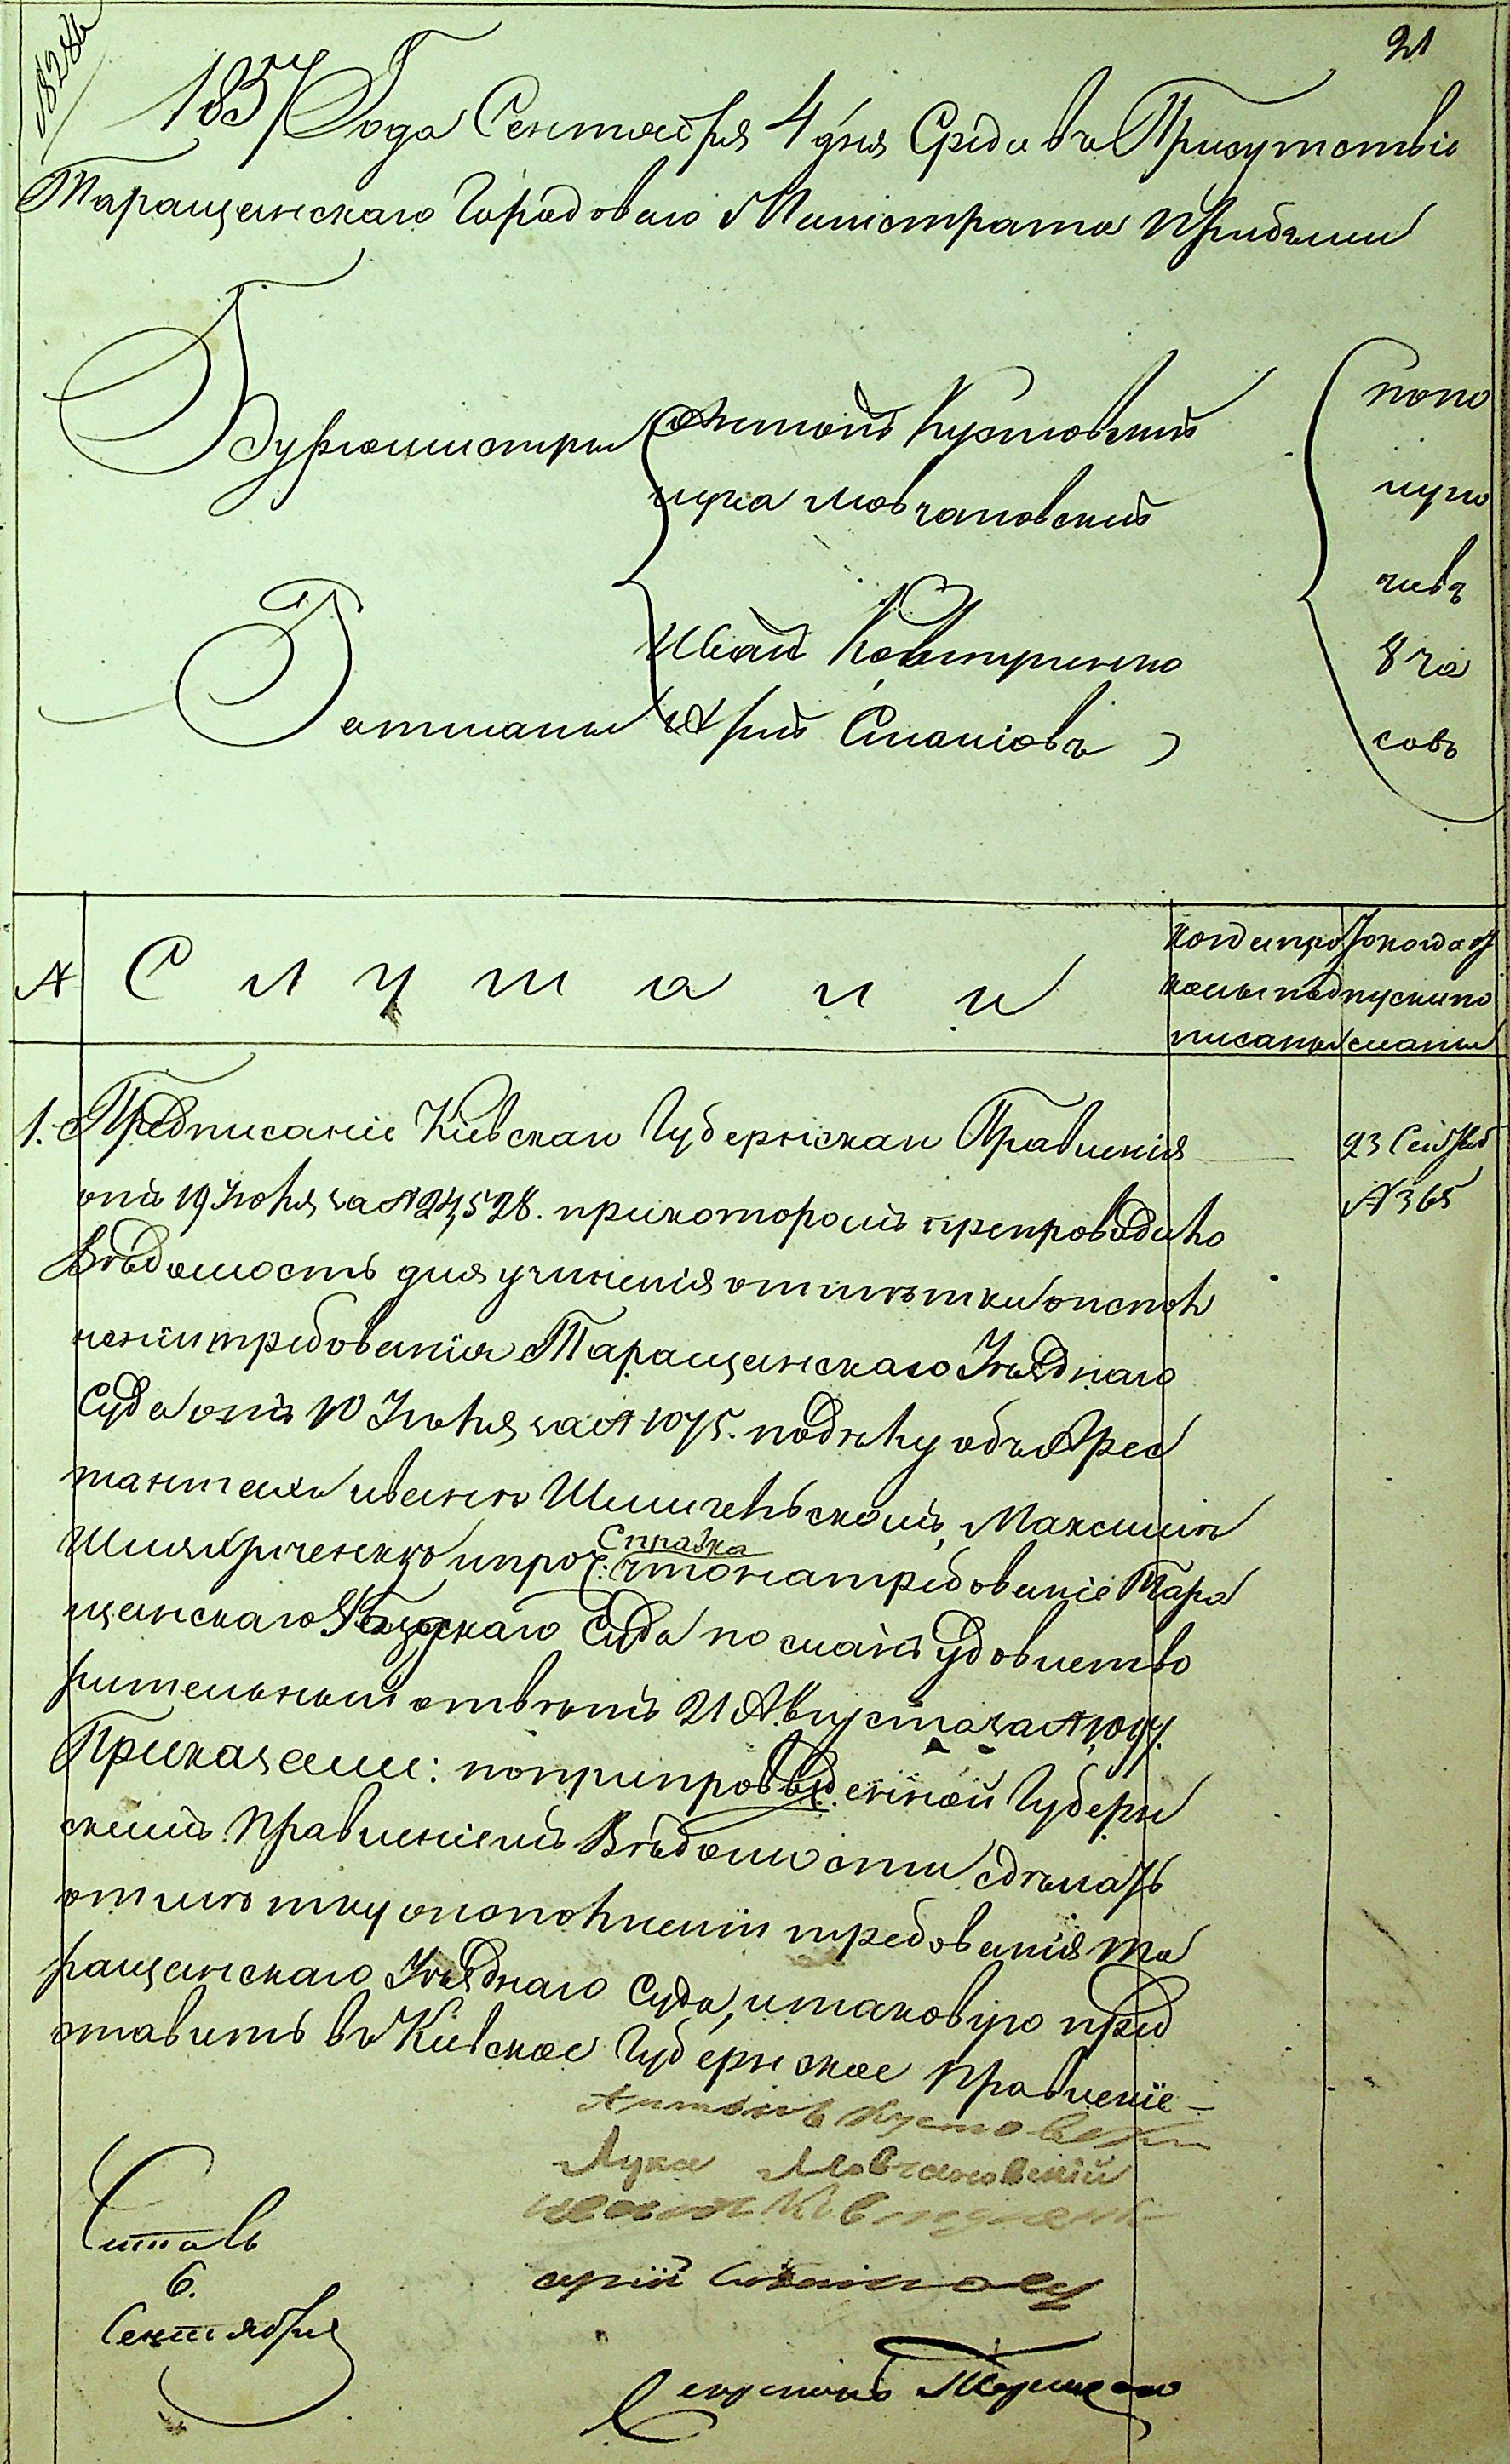 21
1857 Года Сентября 4 дня Среда въ Присутствіе
Таращанскаго Городоваго Магистрата прибыли
Бургомистры
Антонъ Кустовскій
Лука Мовчановскій
Ратманы
Иванъ Ковтуненко
Юрій
попо
луно
чивъ
8 ча
совъ
№ Слушали
когда прото
колы под
писаны
когда от
пуски по
сланы
1. Предписаніе Кіевскаго Губернскаго Правленія
отъ 19 Іюня за № 24,528. при которомъ препровождено
Вѣдомость для учиненія отмѣтки о испол
неніи требованія Таращанскаго Уѣзднаго
Суда отъ 10 Іюня за № 1075. по дѣлу объ Арес
тантахъ Иванѣ Максимѣ
и проч: Справка что на требованіе Тара
щанскаго Уѣзднаго Суда посланъ удовлетво
рительный отвѣтъ 21 Августа за №
Приказали: по припровожденной Губерн
скимъ Правленіемъ Вѣдомости сдѣлать
отмѣтку о исполненіи требованія Та
ращанскаго Уѣзднаго Суда, и таковую пред
ставить въ Кіевское Губернское Правленіе
23 Сентября
№ 365
Антонъ Кустовскій
Лука Мовчановскій
Иванъ Ковтуненко
Юрій
Читалъ
6.
Сентября
Секретарь